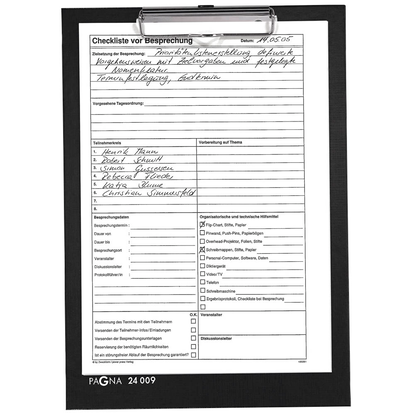 Checkliste vor Besprechung Datum: 14.05.05
Zielsetzung der Besprechung: Prioritätenlistenerstellung, definierte
Vorgehensweisen mit Zielvorgaben und festgelegte
Nomenklatur
Terminfestlegung,
Vorgesehene Tagesordnung:
Teilnehmerkreis Vorbereitung auf Thema
1. Henrik Mann
2. Robert Schmitt
3. Simon
4. Rebecca Flieder
5. Katja Blume
6. Christian Simmersfeld
7.
8.
Besprechungsdaten Organisatorische und technische Hilfsmittel:
Besprechungstermin: Flip-Chart, Stifte, Papier
Dauer von Pinwand, Push-Pins, Papierbögen
Dauer bis Overhead-Projektor, Folien, Stifte
Besprechungsort Schreibmappen, Stifte, Papier
Veranstalter Personal-Computer, Software, Daten
Diskussionsleiter Diktiergerät
Protokollführer/in Video/TV
Telefon
Schreibmaschine
Ergebnisprotokoll, Checkliste bei Besprechung
O.K. Veranstalter
Abstimmung des Termins mit den Teilnehmern
Versenden der Teilnehmer-Infos/Einladungen
Versenden der Besprechungsunterlagen Diskussionsleiter
Reservierung der benötigten Räumlichkeiten
Ist ein störungsfreier Ablauf der Besprechung garantiert?
PAGNA 24 009